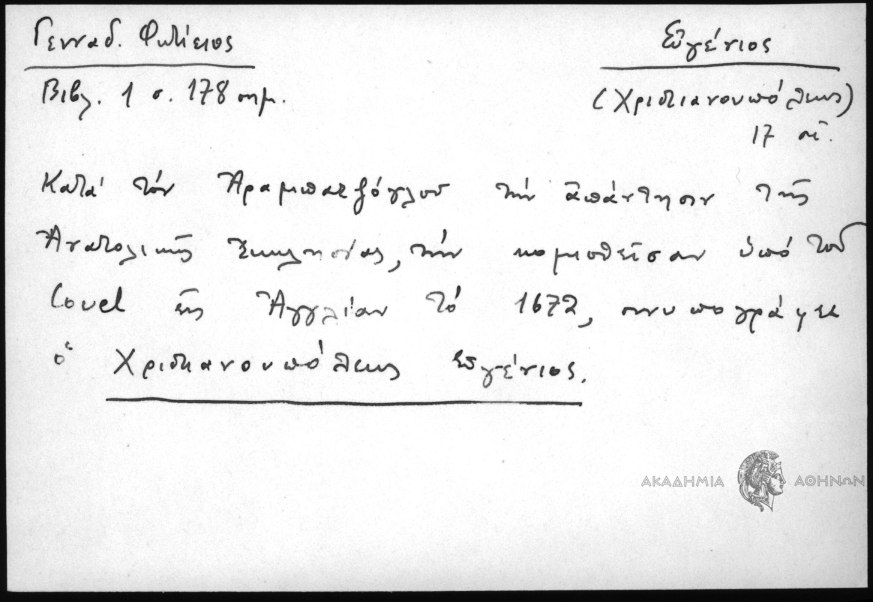 Γενναδ. Φωτίειος
Εὐγένιος
Βιβλ. 1 σ. 178 σημ.
(Χριστιανουπόλεως)
17 αἰ.
Κατά τόν Ἀραμπατζόγλου τήν ἀπάντησιν τῆς
Ἀνατολικῆς Ἐκκλησίας, τήν κομισθεῖσαν ὑπό τοῦ
Covel εἰς Ἀγγλίαν τό 1672, συνυπογράφει
ὁ Χριστιανουπόλεως Εὐγένιος.
ΑΚΑΔΗΜΙΑ ΑΘΗΝΩΝ